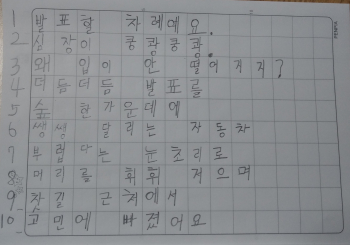 1 발표할 차례예요.
2 심장이 쿵쾅쿵쾅.
3 왜 입이 안 떨어지지?
4 더듬더듬 발표를
5 숲 한가운데에
6 쌩쌩 달리는 자동차
7 부럽다는 눈초리로
8 머리를 휘휘 저으며
9 찻길 근처에서
10 고민에 빠졌어요